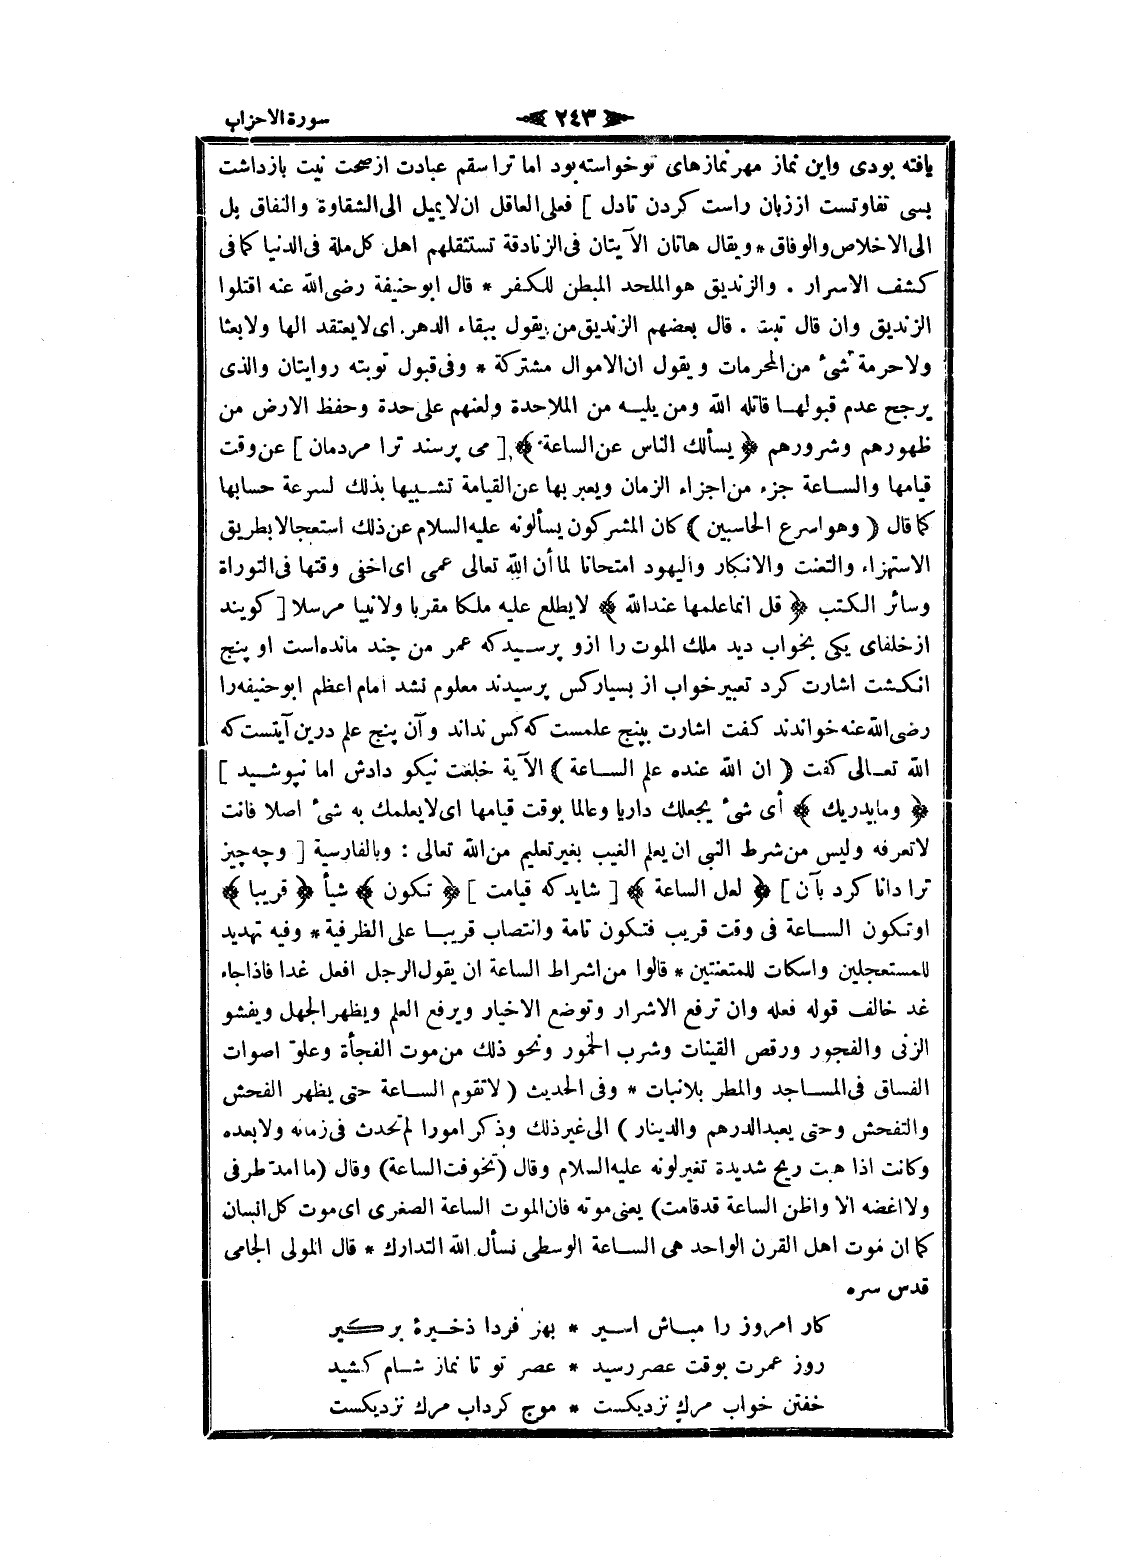 سورة الاحزاب ﴿ ٢٤٣ ﴾
يافته بودى واين نماز مهر نمازهاى تو خواسته بود اما ترا سقم عبادت از صحت نيت بازداشت
بسى تفاوتست از زبان راست كردن تادل ] فعلى العاقل ان لايميل الى الشقاوة والنفاق بل
الى الاخلاص والوفاق * ويقال هاتان الآيتان فى الزنادقة تستثقلهم اهل كل ملة فى الدنيا كما فى
كشف الاسرار . والزنديق هو الملحد المبطن للكفر * قال ابو حنيفة رضى الله عنه اقتلوا
الزنديق وان قال تبت . قال بعضهم الزنديق من يقول ببقاء الدهر. اى لايعتقد الها ولا بعثا
ولا حرمة شئ من المحرمات ويقول ان الاموال مشتركة * وفى قبول توبته روايتان والذى
يرجح عدم قبولها قاتله الله ومن يليه من الملاحدة ولعنهم على حدة وحفظ الارض من
ظهورهم وشرورهم ﴿ يسألك الناس عن الساعة ﴾ [ مى پرسند ترا مردمان ] عن وقت
قيامها والساعة جزء من اجزاء الزمان ويعبر بها عن القيامة تشبيها بذلك لسرعة حسابها
كما قال ( وهو اسرع الحاسبين ) كان المشركون يسألونه عليه السلام عن ذلك استعجالا بطريق
الاستهزاء والتعنت والانكار واليهود امتحانا لما أن الله تعالى عمى اى اخفى وقتها فى التوراة
وسائر الكتب ﴿ قل انما علمها عند الله ﴾ لايطلع عليه ملكا مقربا ولا نبيا مرسلا [ كويند
از خلفاى يكى بخواب ديد ملك الموت را ازو پرسيد كه عمر من چند مانده است او پنج
انكشت اشارت كرد تعبير خواب از بسيار كس پرسيدند معلوم نشد امام اعظم ابو حنيفه را
رضى الله عنه خواندند كفت اشارت بپنج علمست كه كس نداند وآن پنج علم درين آيتست كه
الله تعالى كفت ( ان الله عنده علم الساعة ) الآية خلعت نيكو دادش اما نپوشيد ]
﴿ وما يدريك ﴾ أى شئ يجعلك داريا وعالما بوقت قيامها اى لايعلمك به شئ اصلا فانت
لاتعرفه وليس من شرط النبى ان يعلم الغيب بغير تعليم من الله تعالى : وبالفارسية [ وچه چيز
ترا دانا كرد بآن ] ﴿ لعل الساعة ﴾ [ شايد كه قيامت ] ﴿ تكون ﴾ شيأ ﴿ قريبا ﴾
او تكون الساعة فى وقت قريب فتكون تامة وانتصاب قريبا على الظرفية * وفيه تهديد
للمستعجلين واسكات للمتعنتين * قالوا من اشراط الساعة ان يقول الرجل افعل غدا فاذا جاء
غد خالف قوله فعله وان ترفع الاشرار وتوضع الاخيار ويرفع العلم ويظهر الجهل ويفشو
الزنى والفجور ورقص القينات وشرب الخمور ونحو ذلك من موت الفجأة وعلوّ اصوات
الفساق فى المساجد والمطر بلا نبات * وفى الحديث ( لاتقوم الساعة حتى يظهر الفحش
والتفحش وحتى يعبد الدرهم والدينار ) الى غير ذلك وذكر امورا لم تحدث فى زمانه ولا بعده
وكانت اذا هبت ريح شديدة تغير لونه عليه السلام وقال (تخوفت الساعة) وقال (ما امدّ طرفى
ولا اغضه الا واظن الساعة قد قامت) يعنى موته فان الموت الساعة الصغرى اى موت كل انسان
كما ان موت اهل القرن الواحد هى الساعة الوسطى نسأل الله التدارك * قال المولى الجامى
قدس سره
كار امروز را مباش اسير * بهر فردا ذخيرهٔ بر كير
روز عمرت بوقت عصر رسيد * عصر تو تا نماز شام كشيد
خفتن خواب مرك نزديكست * موج كرداب مرك نزديكست